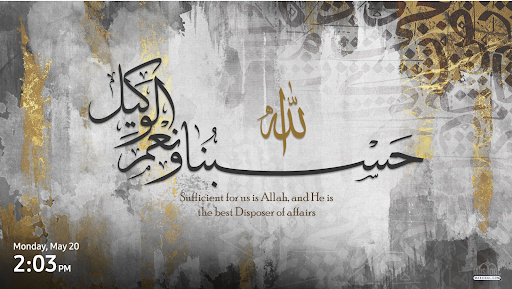 حَسْبُنَا الله وَنِعْمَ الْوَكِيل
Sufficient for us is Allah, and He is
the best Disposer of affairs
Monday, May 20
2:03 PM